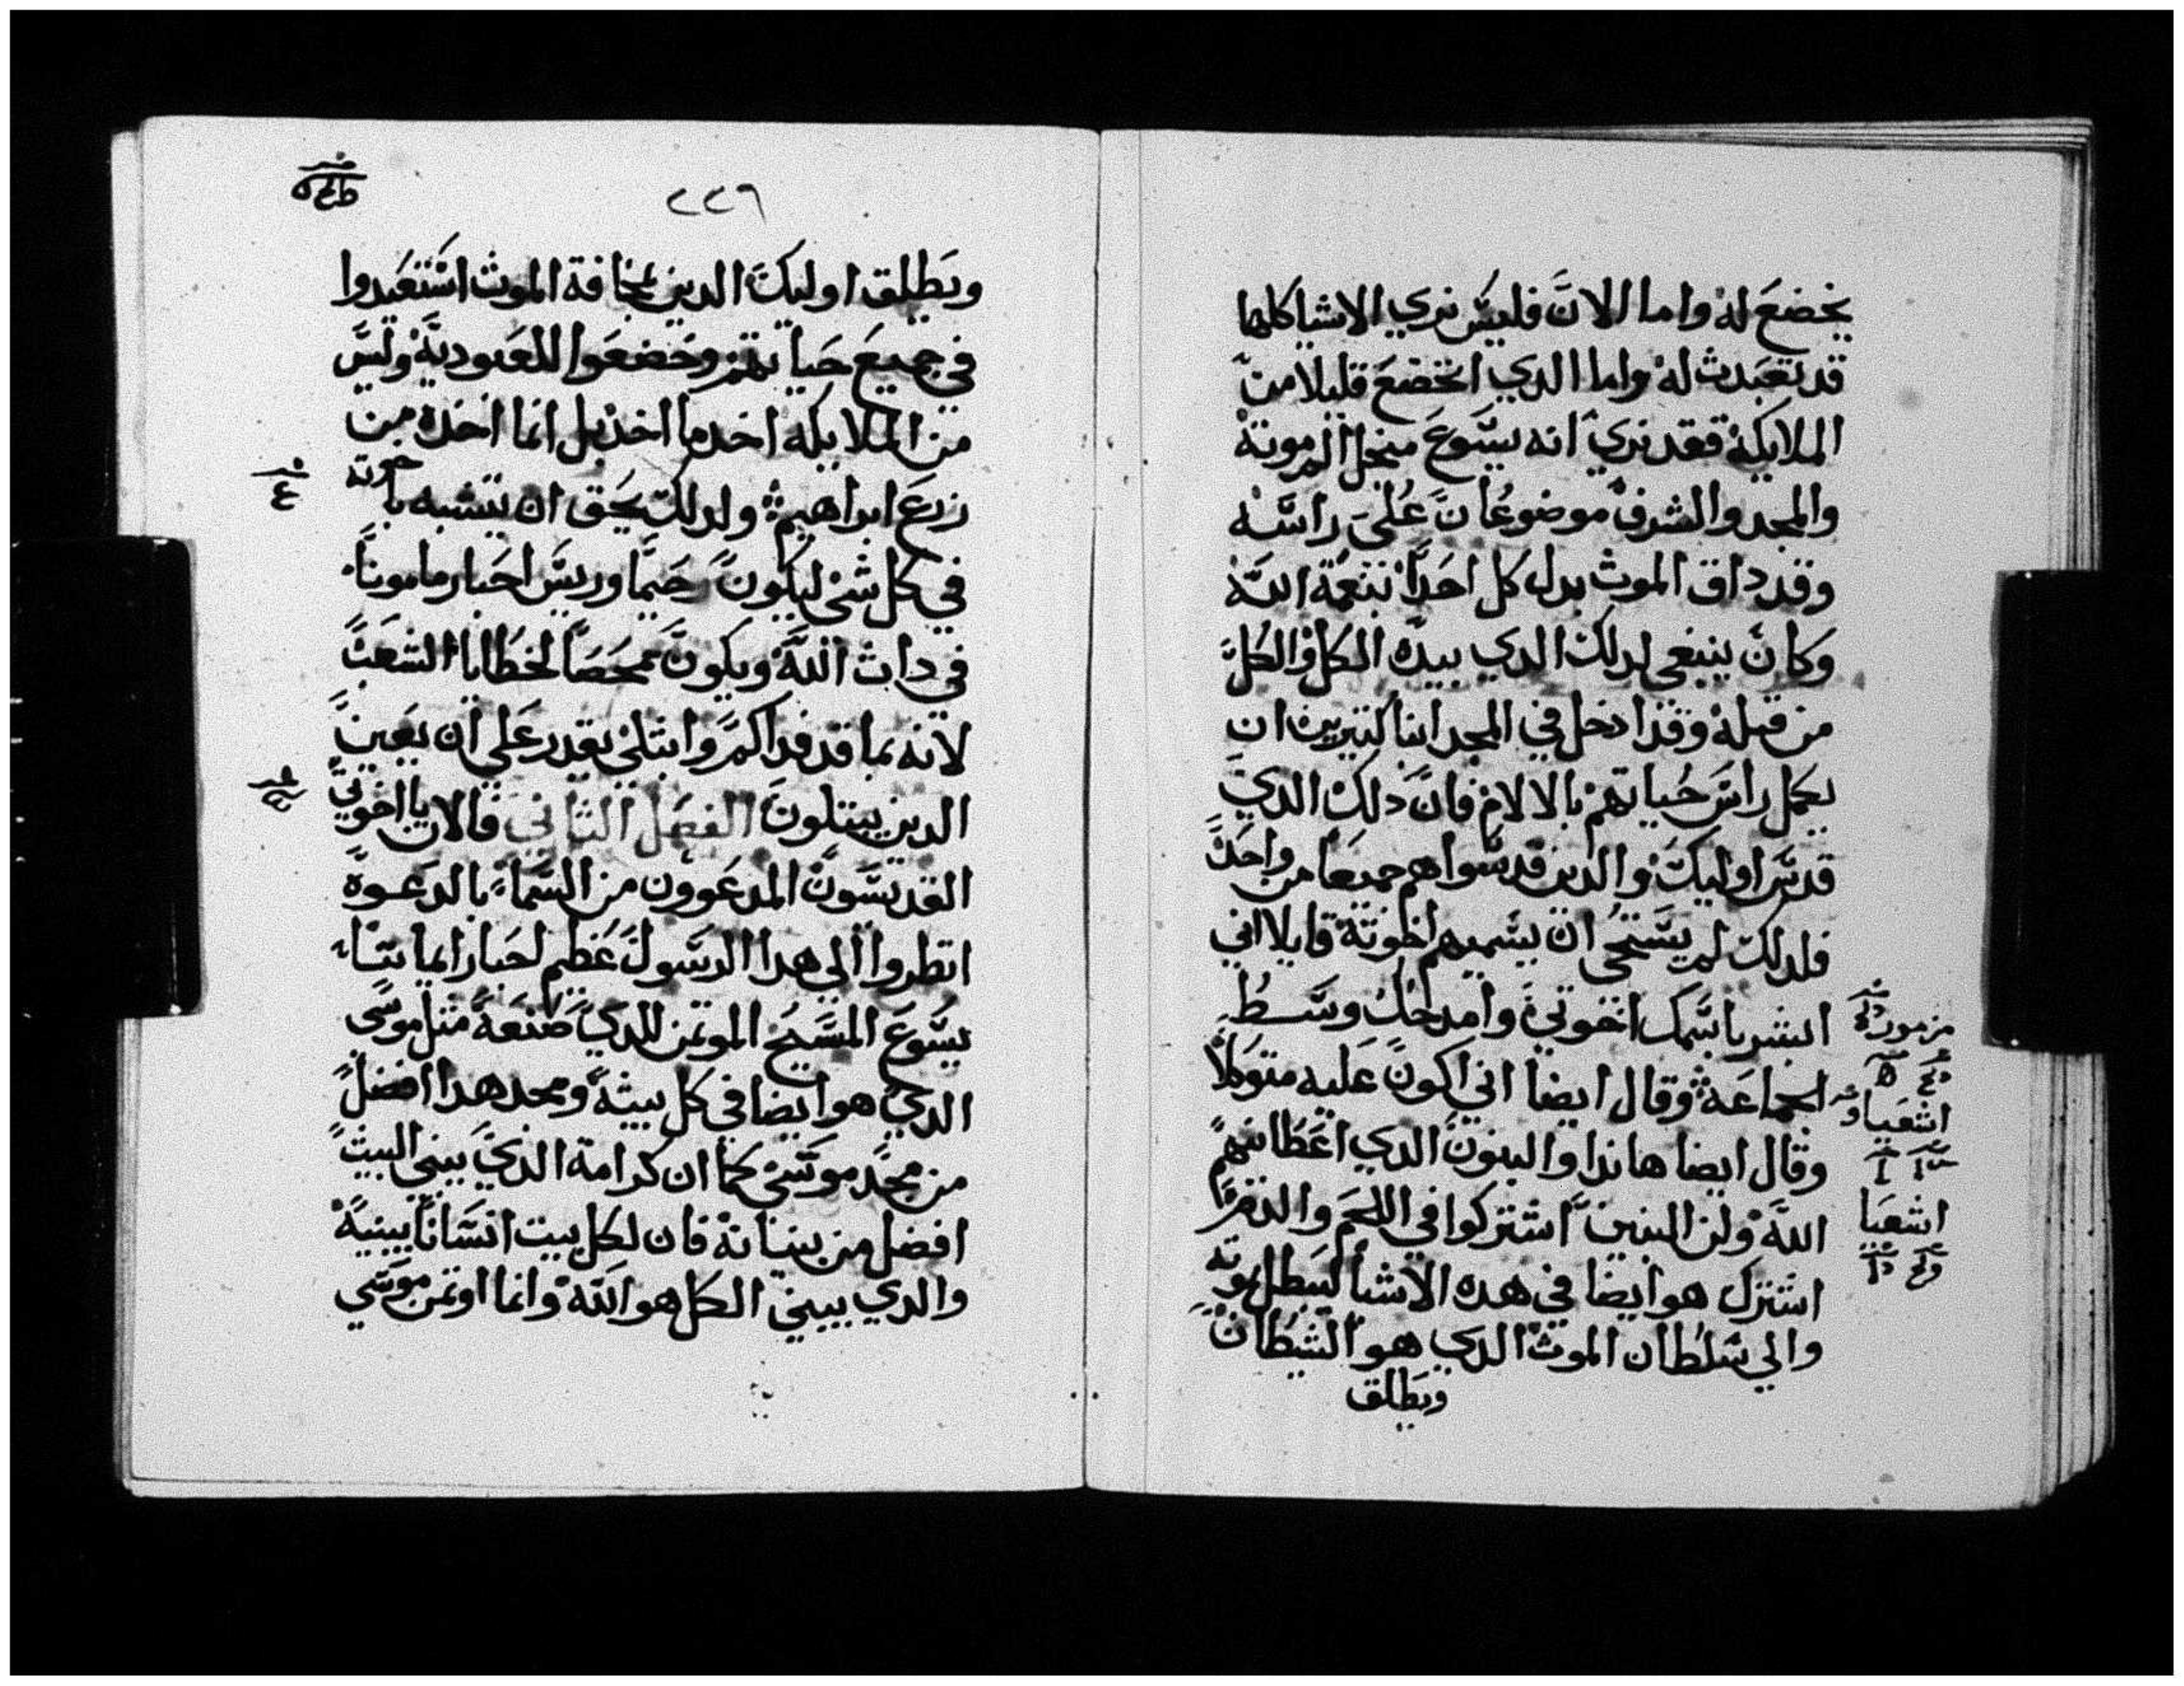 يخضع له واما الان فليس نري الاشيا كلها
قد تعبدت له واما الدي اتخضع قليلا من
الملايكة فقد نري انه يسوع منجل الم موته
والمجد والشرف موضوعان علي راسه
وقد داق الموت بدل كل احدا بنعمة الله
وكان ينبغي لدلك الدي بيده الكل والكل
من قبله وقد ادخل في المجد ابنا كتيرين ان
يكمل راس حياتهم بالالام فان دلك الدي
قدس اوليك والدين قدسوا هم جميعا من واحد
فلدلك لم يستحي ان يسميهم اخوته قايلا اني
ابشر باسمك اخوتي وامدحك وسط
الجماعة وقال ايضا اني اكون عليه متوكلا
وقال ايضا هاندا والبنون الدي اعطانيهم
الله ولن البنين اشتركوا في اللحم والدم
اشترك هو ايضا في هده الاشيا ليبطل بموته
والي سلطان الموت الدي هو الشيطان
ويطلق
مزمور
اشعيا
اشعيا
٢٢٦
ويطلق اوليك الدين بمخافة الموت استعبدوا
في جميع حياتهم وخضعوا للعبودية وليس
من الملايكه اخد ما اخد بل انما اخده من
زرع ابراهيم ولدلك يحق ان يتشبه باخوته
في كل شي ليكون رحيما وريس احبار مامونا
في دات الله ويكون ممحصا لخطايا الشعب
لانه بما قد فداكم وابتلي يقدر علي ان يعين
الدين يبتلون الفصل التاني فالان يا اخوتي
القديسون المدعوون من السماء بالدعوة
انظروا الي هدا الرسول عظيم احبار ايماننا
يسوع المسيح الموتمن للدي صنعه متل موسي
الدي هو ايضا في كل بيته ومجد هدا افضل
من مجد موسي كما ان كرامة الدي يبني البيت
افضل من بنيانه فان لكل بيت انسانا يبنيه
والدي يبني الكل هو الله وانما اوتمن موسي